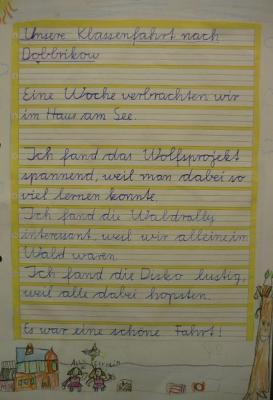 Unsere Klassenfahrt nach
Dobbrikow
Eine Woche verbrachten wir
im Haus am See.
Ich fand das Wolfsprojekt
spannend, weil man dabei so
viel lernen konnte.
Ich fand die Waldrally
interessant, weil wir allein im
Wald waren.
Ich fand die Disko lustig,
weil alle dabei hopsten.
Es war eine schöne Fahrt!